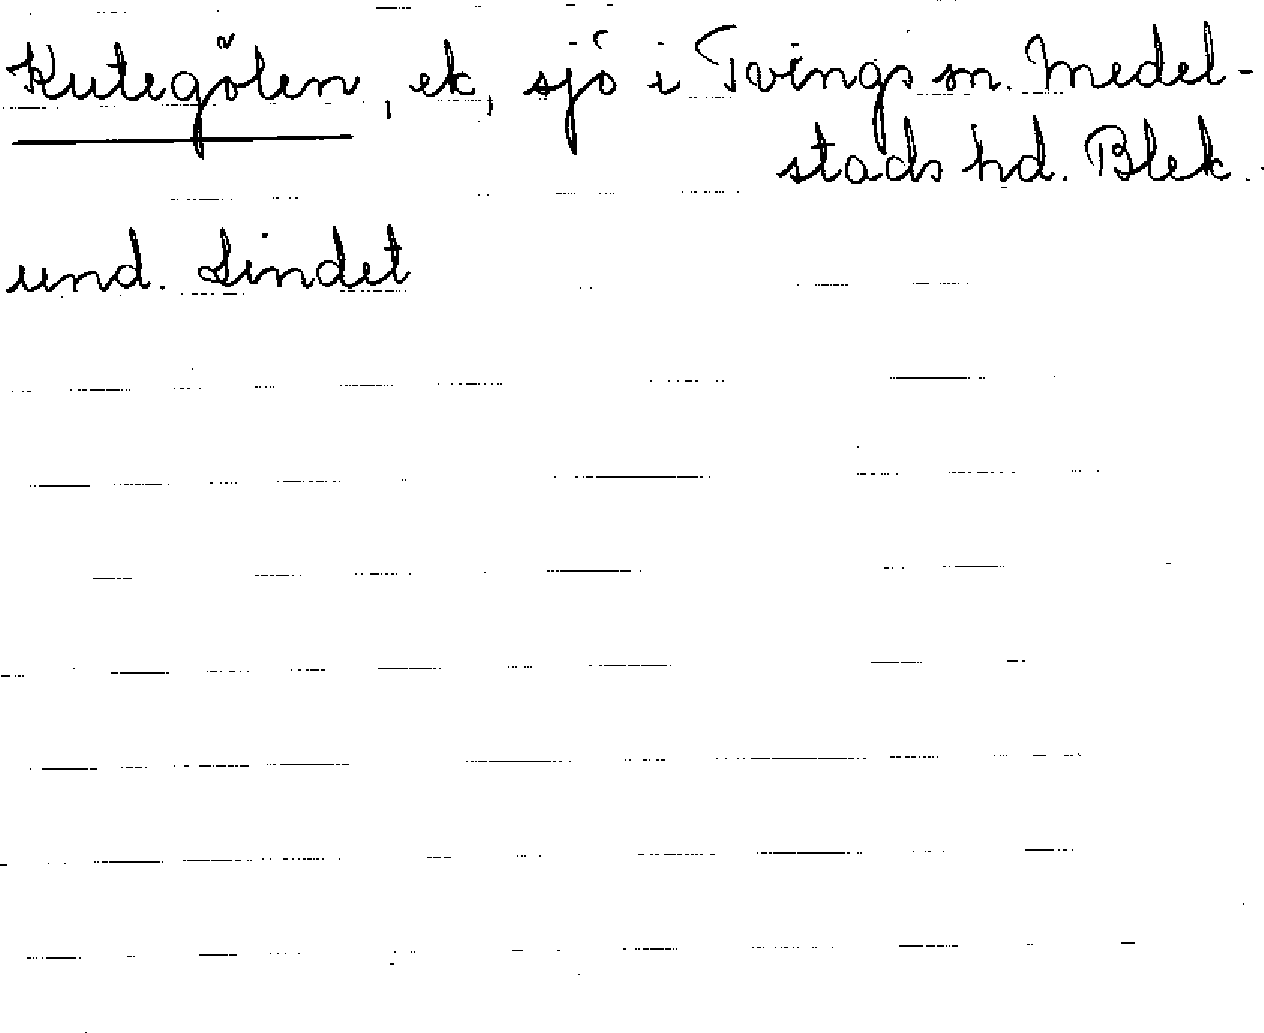 Kutegölen, ek, sjö i Tvings sn. Medel-
stads hd. Blek.
und. Lindet